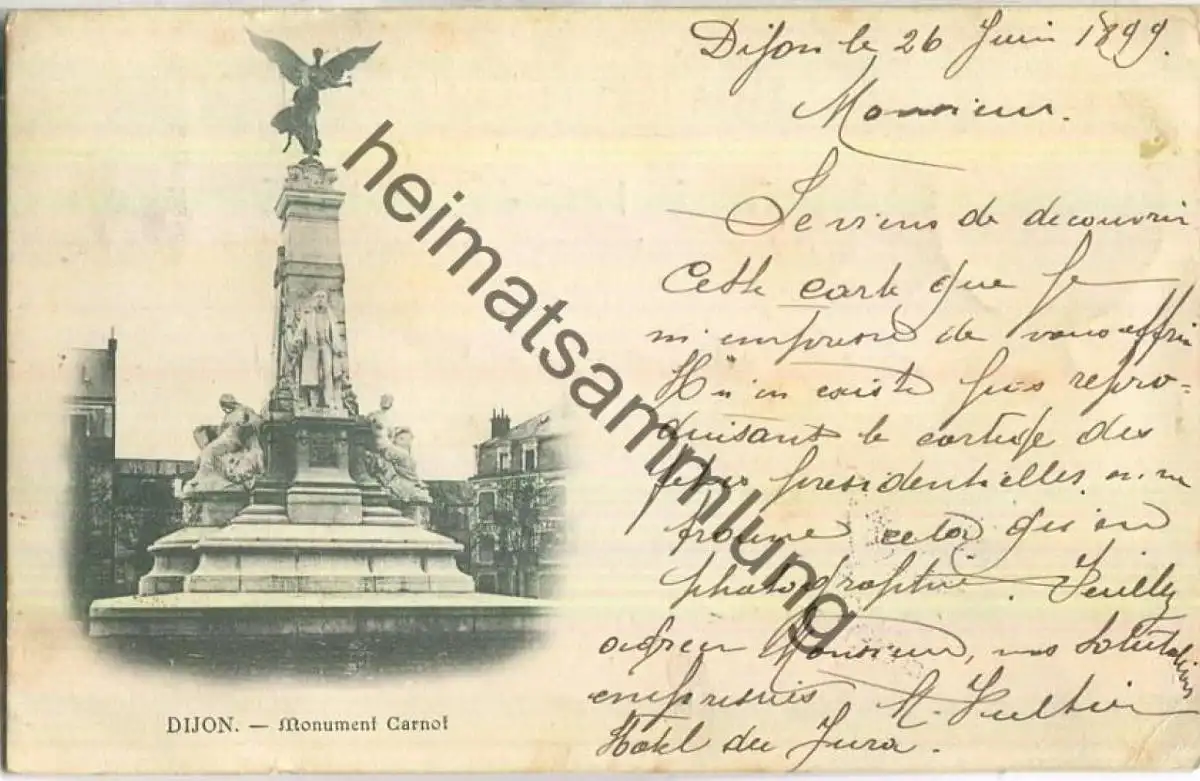 Dijon le 26 Juin 1899.
Monsieur.
Je viens de decouvrir
Cette carte que je
m'empresse de vous offrir
Il n'en existe pas repro-
duisant le cortège des
fêtes présidentielles. on ne
trouve cela qu'en
photographie. Veuillez
agréer Monsieur, nos salutations
empressées
Hôtel du Jura.
DIJON. — Monument Carnot
heimatsammlung